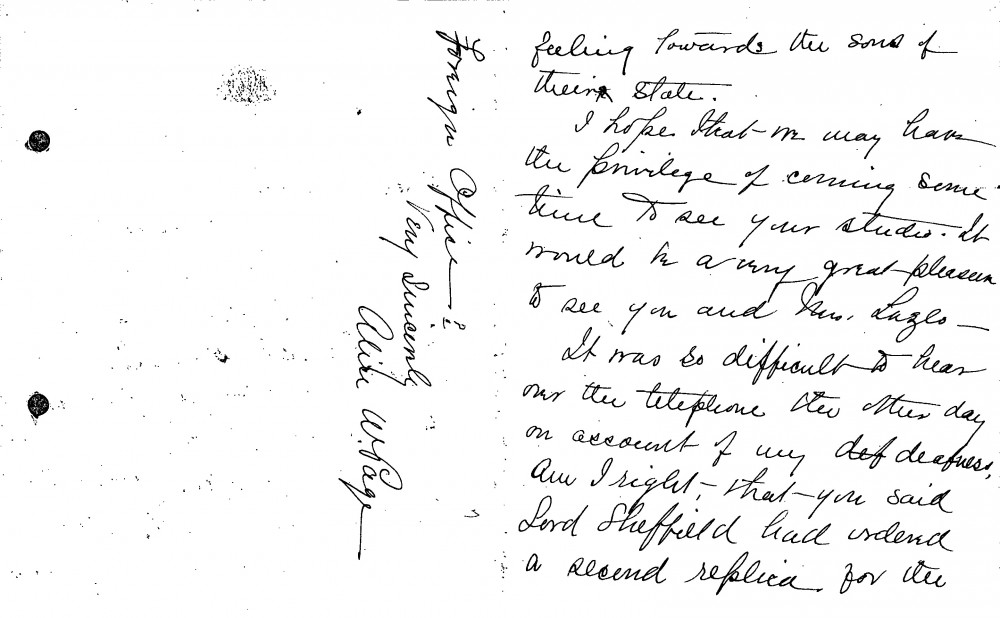 feeling towards the sons of
their state.
I hope that we may have
the privilege of coming some-
time to see your studio. It
would be a very great pleasure
to see you and Mrs. Lazlo —
It was so difficult to hear
over the telephone the other day
on account of my def deafness,
Am I right, that you said
Lord Sheffield had ordered
a second replica for the
Foreign Office — ?
Very Sincerely
Alice W. Page —